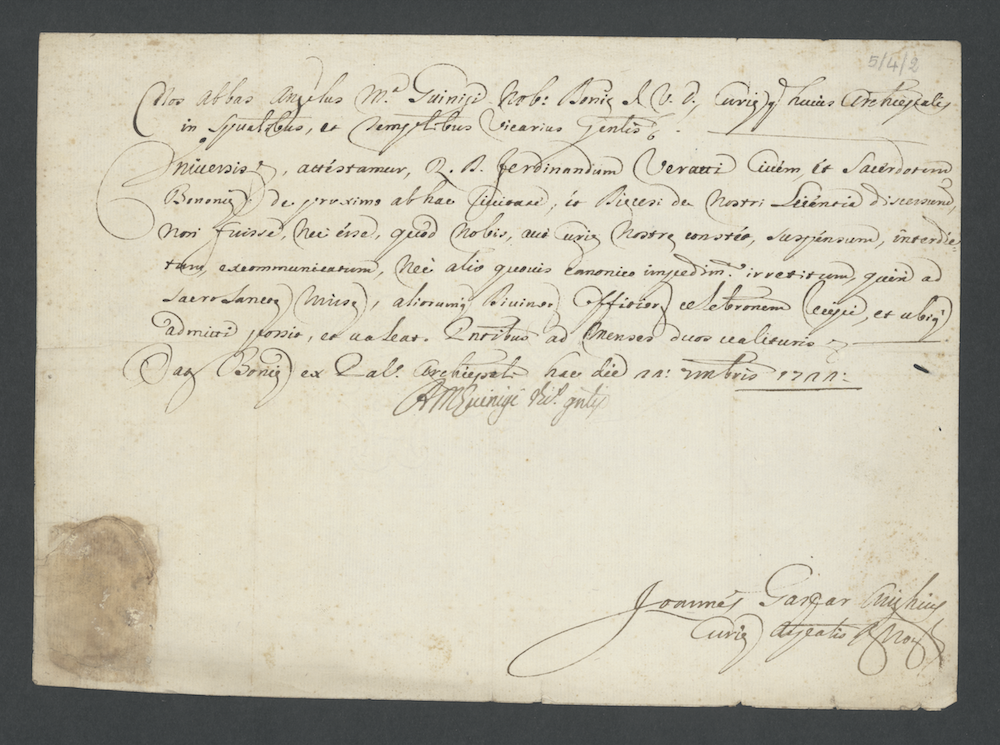 5/4/2
Nos Abbas Angelus M.ª Guinigi Nob: Bonię I. V. D. Curię huius Archiepalis
in spualibus, et temptibus Vicarius Gentis
Universis, attestamur, R. D. Ferdinandum Veratti Civem, et Sacerdotem
Bononię de proximo ab hac Civitate, et Diecesi de Nostri Licentia discessurum,
non fuisse, nec esse, quod Nobis, aut Curię Nostrę constet, suspensum, interdic-
tum, excommunicatum, nec alio quovis canonico impedim.º irretitum, quin ad
Sacrosanctę Missę, aliorumq Divinor Offitior celebronem recipi, et ubiq
admitti possit, et valeat. Pntibus ad Menses duos valituris
Dat Bonię ex Pal. Archiepali hac die 22: 1722:
AMGuinigi Vic.º gnlis
Joannes Gaspar
Curię Aepalis Not